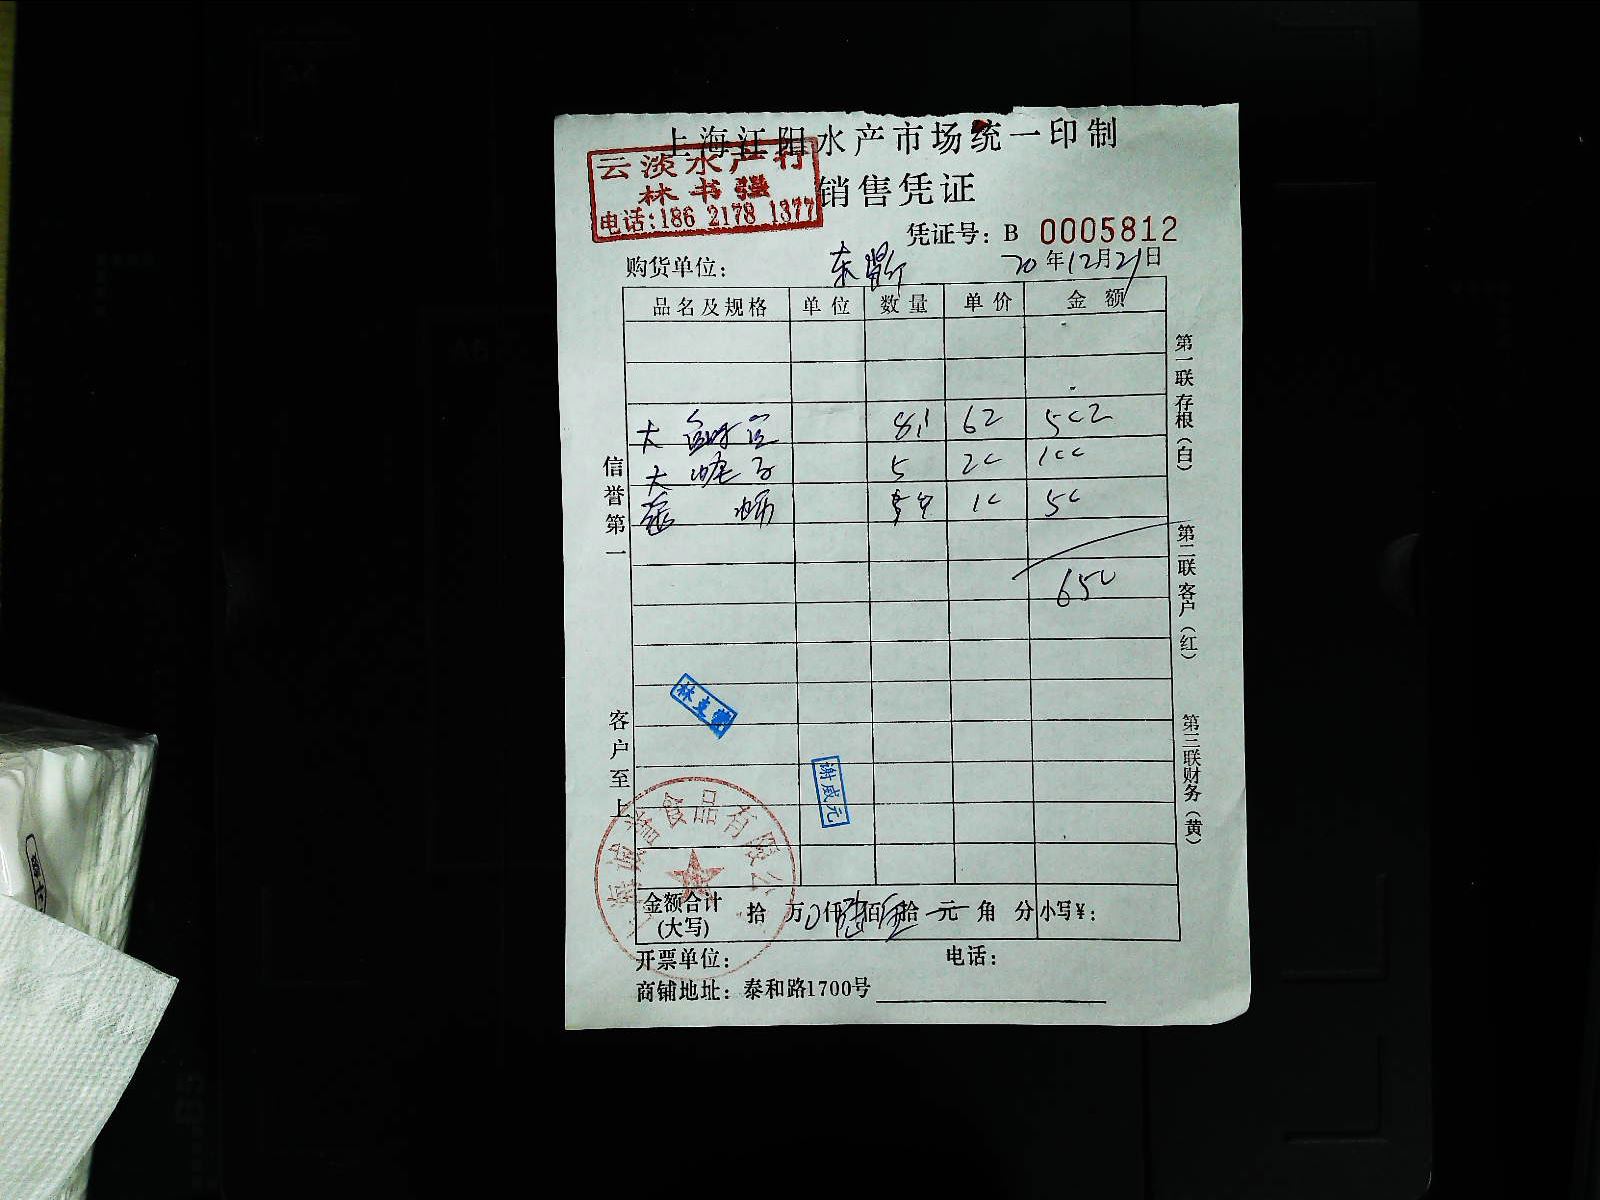 上海江阳水产市场统一印制
云淡水产行
林书强
电话:186 2178 1377
销售凭证
凭证号: B 0005812
购货单位: 20年12月21日
品名及规格 单位 数量 单价 金额
大 8.1 62 502
大 子 5 20 100
10 50
650
信誉第一
客户至上
第一联存根(白)
第二联客户(红)
第三联财务(黄)
谢威元
食品有限公
金额合计(大写) 拾 万 0仟 陆佰 伍拾 元 角 分 小写¥:
开票单位: 电话:
商铺地址: 泰和路1700号